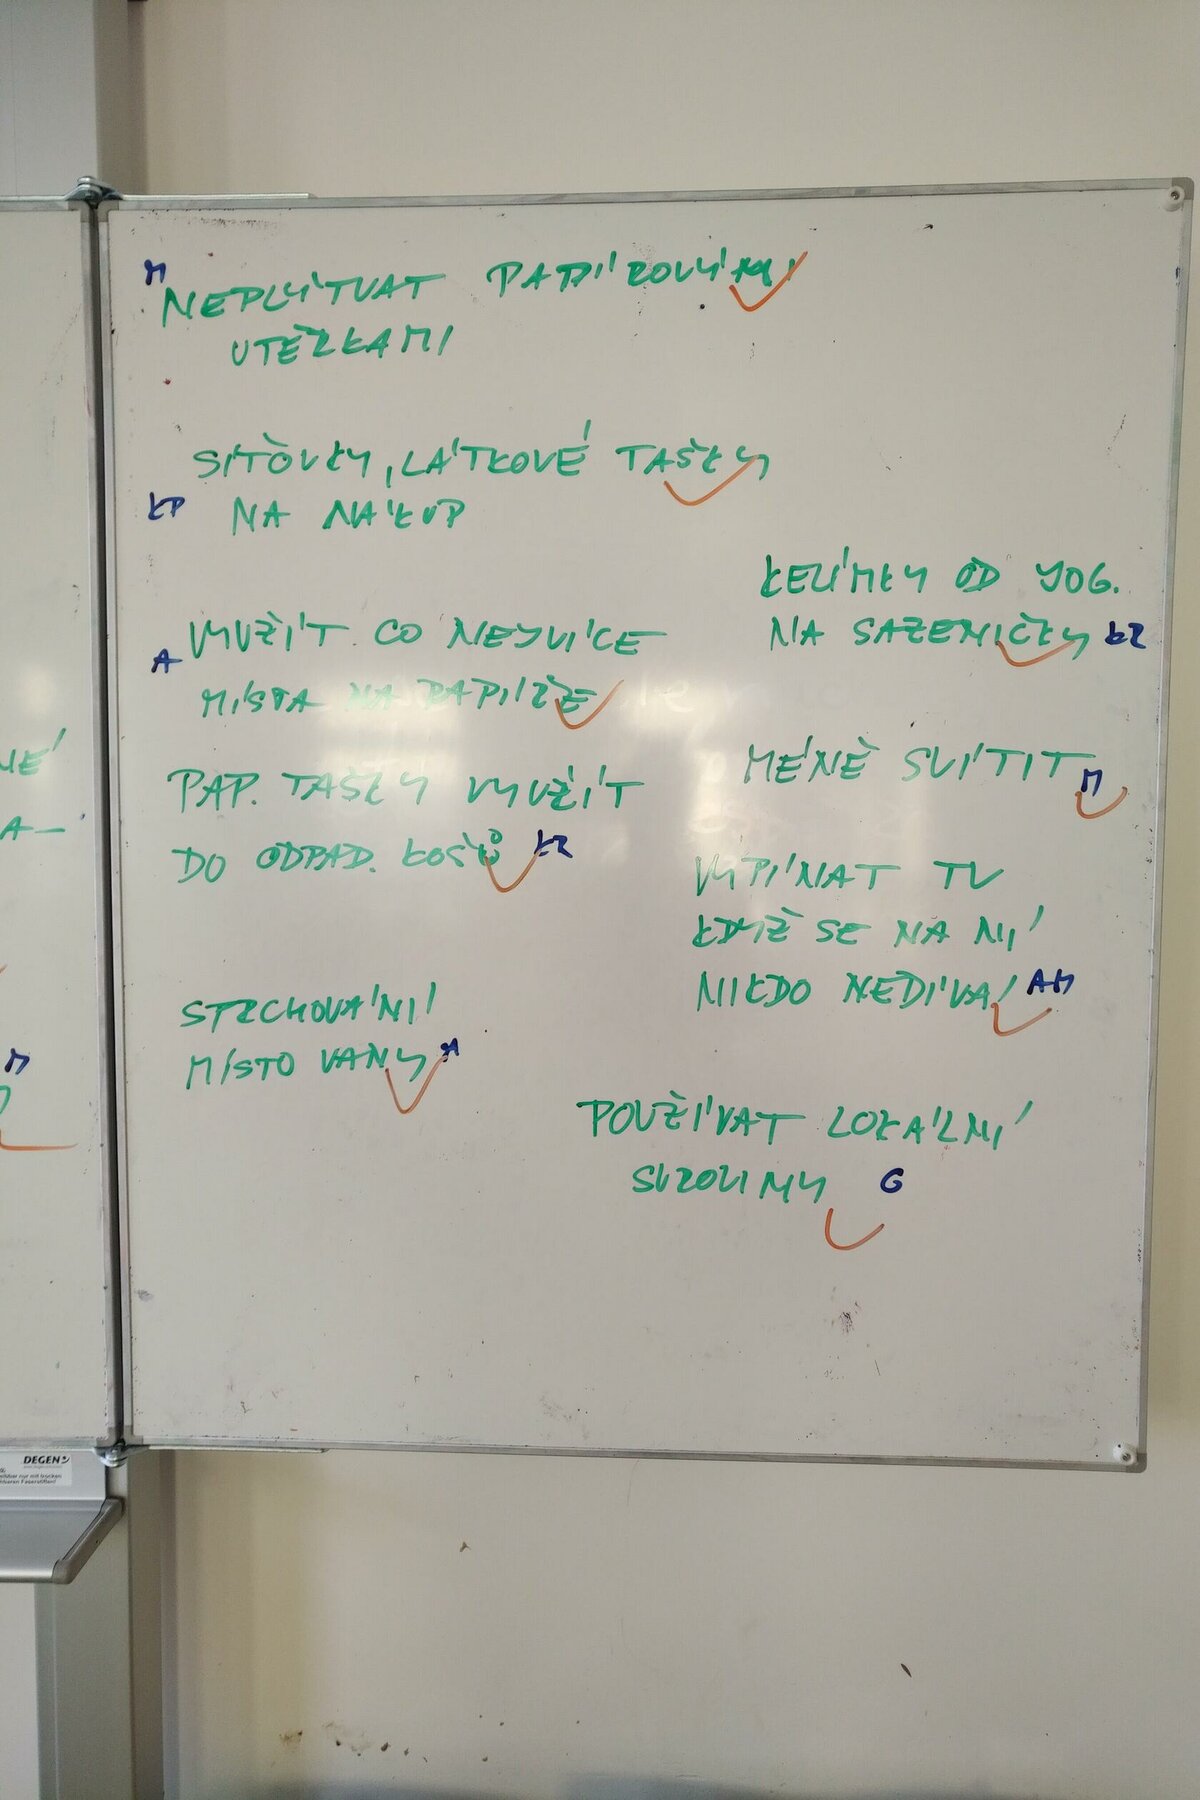 M
NEPLÝTVAT PAPÍROVÝMI
UTĚRKAMI
SÍŤOVKY, LÁTKOVÉ TAŠKY
KP NA NÁKUP
A VYUŽÍT CO NEJVÍCE
MÍSTA NA PAPÍŘE
PAP. TAŠKY VYUŽÍT
DO ODPAD. KOŠŮ KZ
SPRCHOVÁNÍ
MÍSTO VANY A
KELÍMKY OD JOG.
NA SAZENIČKY KZ
MÉNĚ SVÍTIT M
VYPÍNAT TV
KDYŽ SE NA NÍ
NIKDO NEDÍVÁ AM
POUŽÍVAT LOKÁLNÍ
SUROVINY G
NÉ
A-
M
DEGEN